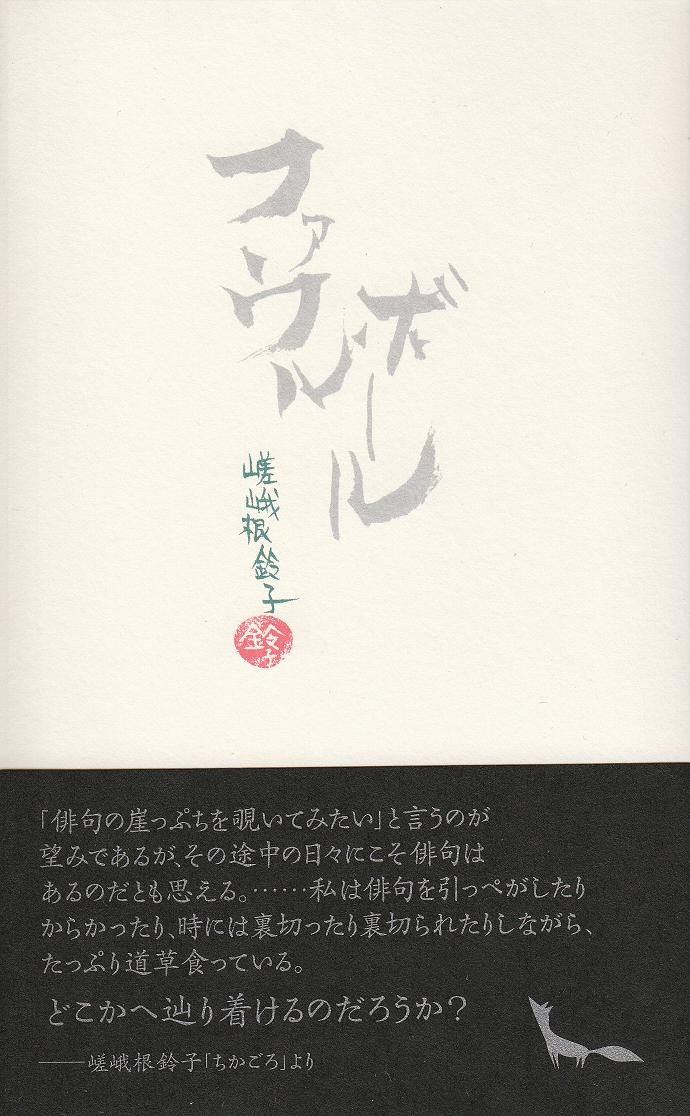 ファウル
ボール
嵯峨根鈴子
鈴子
「俳句の崖っぷちを覗いてみたい」と言うのが
望みであるが、その途中の日々にこそ俳句は
あるのだとも思える。……私は俳句を引っぺがしたり
からかったり、時には裏切ったり裏切られたりしながら、
たっぷり道草食っている。
どこかへ辿り着けるのだろうか？
――嵯峨根鈴子「ちかごろ」より